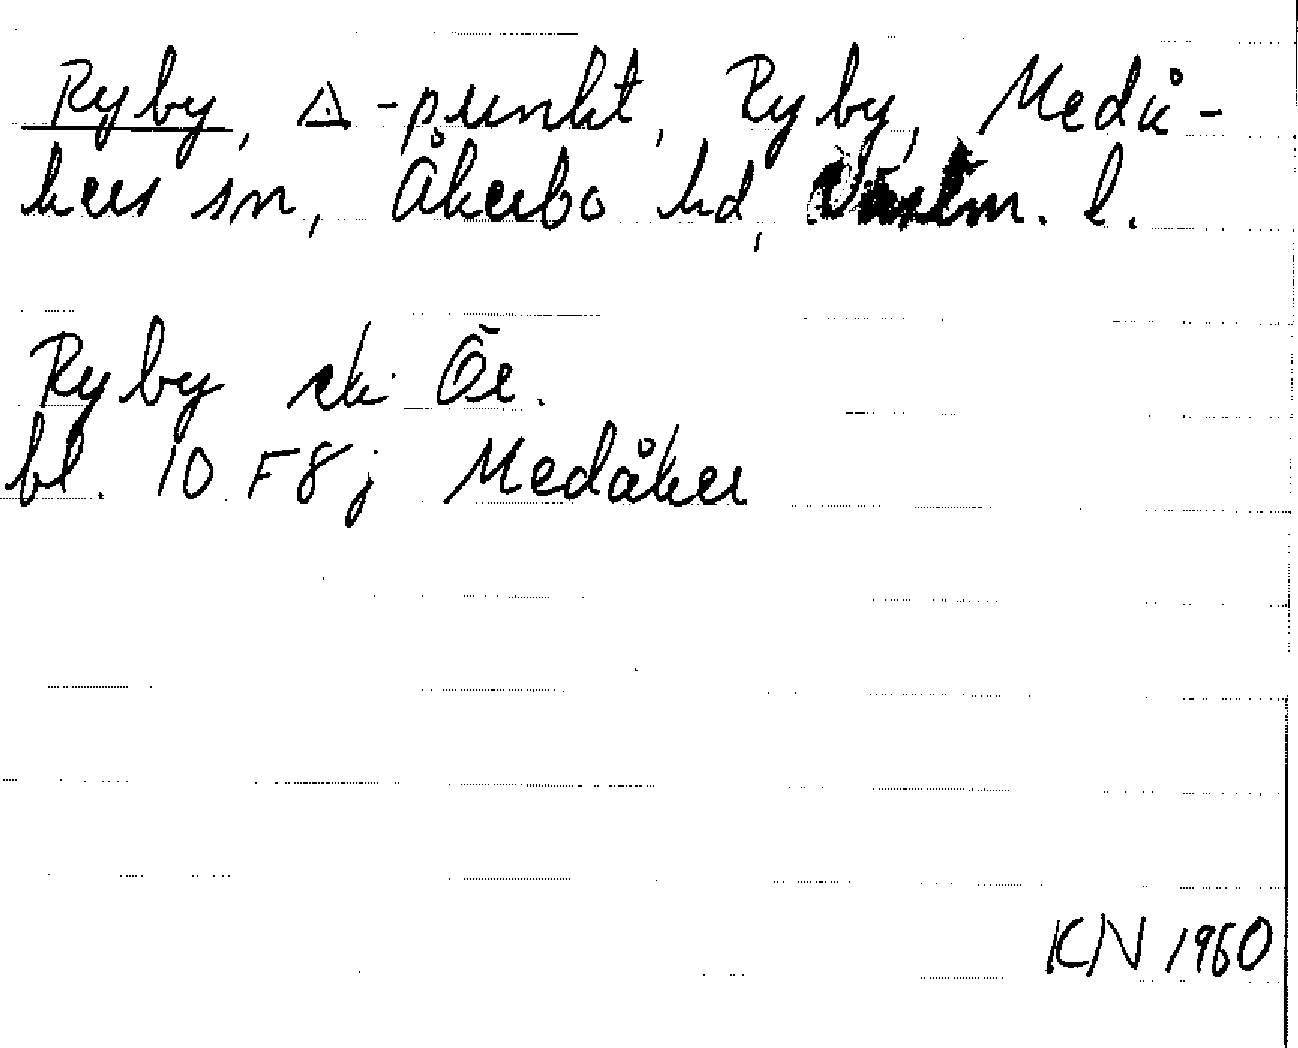 Ryby, △-punkt, Ryby, Medå-
kers sn, Åkerbo hd, Västm. l.
Ryby ek Öe.
bl. 10 F8j Medåker
KN 1960